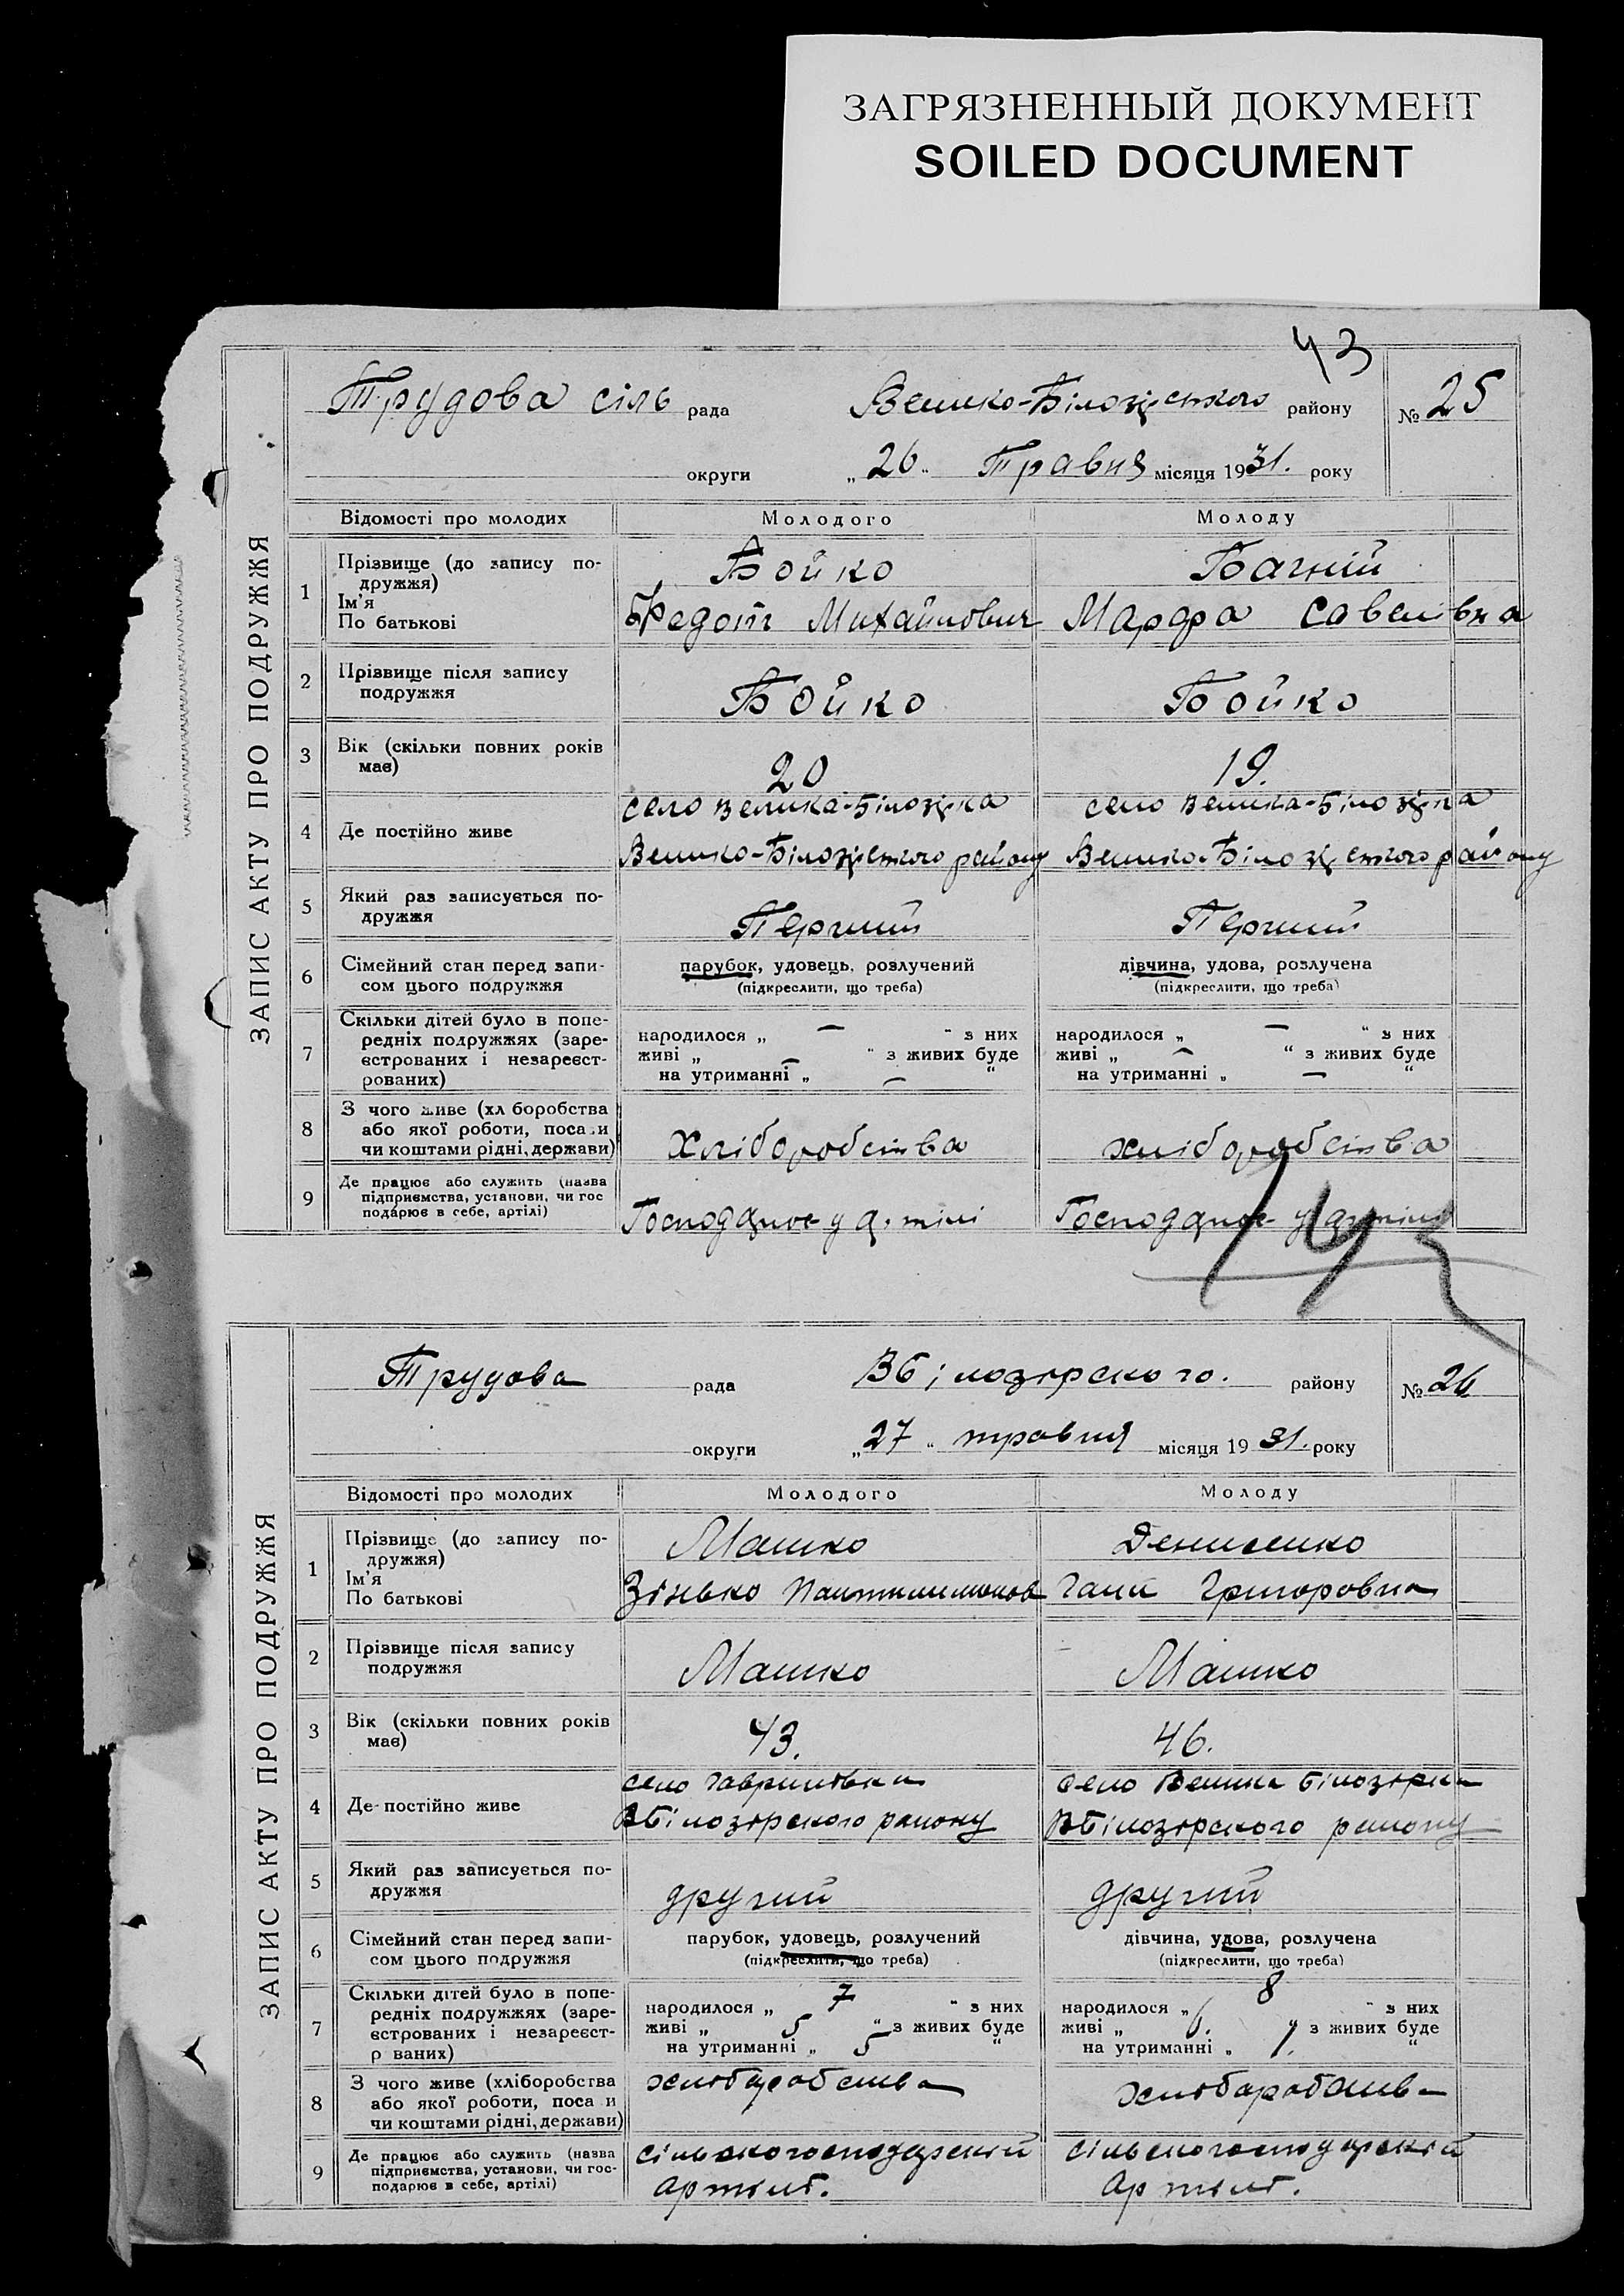 ЗАГРЯЗНЕННЫЙ ДОКУМЕНТ
SOILED DOCUMENT
43
ЗАПИС АКТУ ПРО ПОДРУЖЖЯ
Трудова сіль рада Велико-Білозірського району № 25
округи „ 26 " Травня місяця 1931. року
Відомості про молодих Молодого Молоду
1 Прізвище (до запису по-
дружжя)
Ім'я
По батькові
Бойко
Федот Михайлович
Багній
Марфа Савелівна
2 Прізвище після запису
подружжя
Бойко Бойко
3 Вік (скільки повних років
має)
20 19.
4 Де постійно живе
село Велика-Білозірка
Велико-Білозірського району
село Велика-Білозірка
Велико-Білозірського району
5 Який раз записується по-
дружжя
Перший Перший
6 Сімейний стан перед запи-
сом цього подружжя
парубок, удовець, розлучений
(підкреслити, що треба)
дівчина, удова, розлучена
(підкреслити, що треба)
7 Скільки дітей було в попе-
редніх подружжях (заре-
єстрованих і незареєст-
рованих)
народилося „ — " з них
живі „ — " з живих буде
на утриманні „ — "
народилося „ — " з них
живі „ — " з живих буде
на утриманні „ — "
8 З чого живе (хл боробства
або якої роботи, поса и
чи коштами рідні, держави)
Хліборобства хліборобства
9 Де працює або служить (назва
підприємства, установи, чи гос
подарює в себе, артілі)
Господарює у артілі Господарює у артілі
ЗАПИС АКТУ ПРО ПОДРУЖЖЯ
Трудова рада ВБілозірского. району № 26
округи „ 27 " травня місяця 1931. року
Відомості про молодих Молодого Молоду
1 Прізвище (до запису по-
дружжя)
Ім'я
По батькові
Машко
Зінько Пантилимонов
Денисенко
Ганя Григоровна
2 Прізвище після запису
подружжя
Машко Машко
3 Вік (скільки повних років
має)
43. 46.
4 Де постійно живе
село Гаврилівка
ВБілозірского району
село Велика Білозірка
ВБілозірского району
5 Який раз записується по-
дружжя
другий другий
6 Сімейний стан перед запи-
сом цього подружжя
парубок, удовець, розлучений
(підкреслити, що треба)
дівчина, удова, розлучена
(підкреслити, що треба)
7 Скільки дітей було в попе-
редніх подружжях (заре-
єстрованих і незареєст-
р ваних)
народилося „ 7 " з них
живі „ 5 " з живих буде
на утриманні „ 5 "
народилося „ 8 " з них
живі „ 6. " з живих буде
на утриманні „ 1. "
8 З чого живе (хліборобства
або якої роботи, поса и
чи коштами рідні, держави)
хліборобства хлібаробства
9 Де працює або служить (назва
підприємства, установи, чи гос-
подарює в себе, артілі)
сільскогосподарскій
артілі.
сільскогосподарскій
артілі.